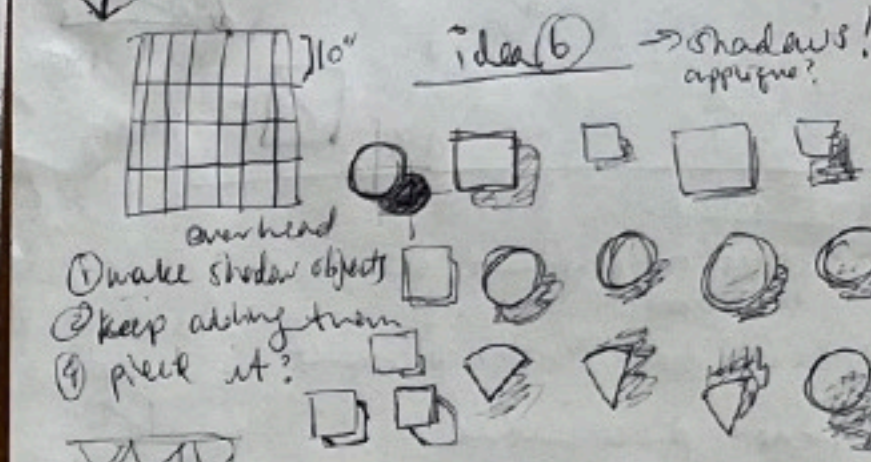 10"
idea (6) → shadows!
applique?
overhead
① make shadow objects
② keep adding them
④ piece it?